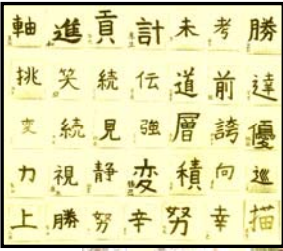 軸進貢計未考勝
挑笑続伝道前達
変続見強層誇優
力視静変積向巡
上勝努辛努幸描